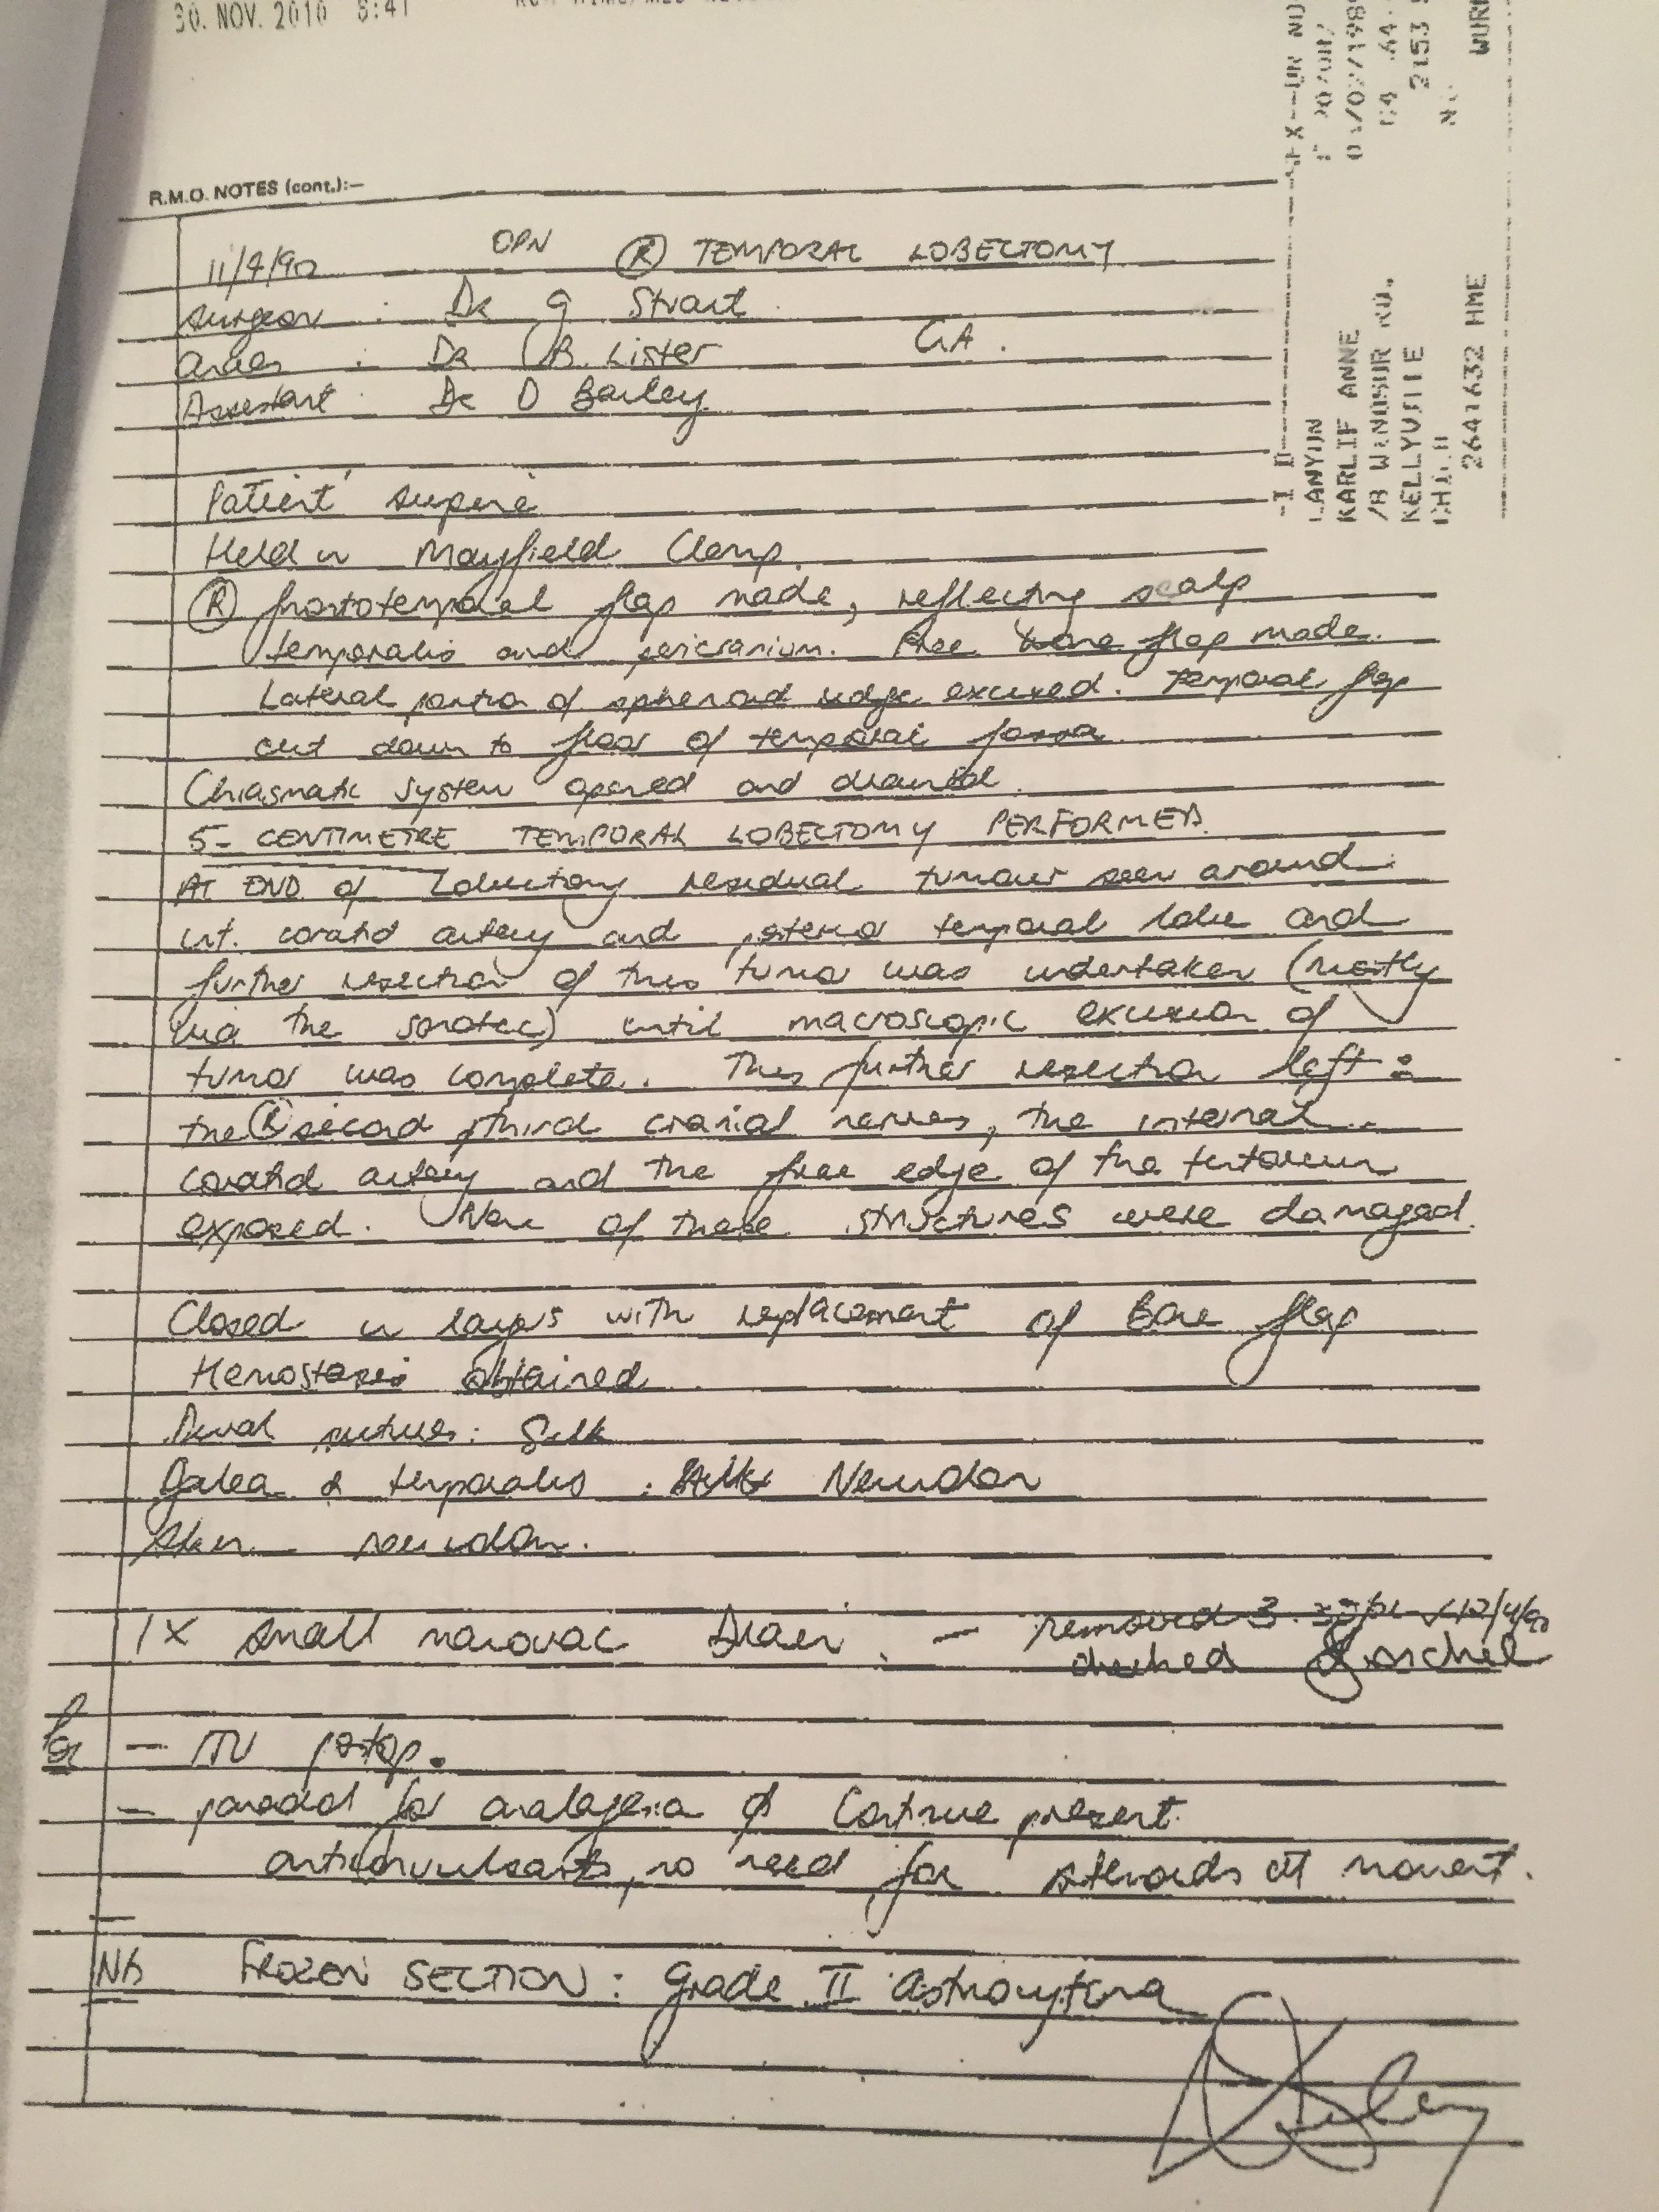 30. NOV. 2010 8:41
R.M.O. NOTES (cont.):-
11/4/90 OPN Ⓡ TEMPORAL LOBECTOMY
Surgeon : Dr G Stuart
Anaes : Dr B. Lister GA.
Assistant : Dr D Bailey
Patient supine
Held in Mayfield Clamp.
Ⓡ frontotemporal flap made, reflecting scalp
temporalis and pericranium. Free bone flap made.
Lateral portion of sphenoid ridge excised. Temporal flap
cut down to floor of temporal fossa
Chiasmatic system opened and drained.
5- CENTIMETRE TEMPORAL LOBECTOMY PERFORMED.
AT END of Lobectomy residual tumour seen around
int. carotid artery and posterior temporal lobe and
further resection of this tumor was undertaken (mostly
via the sonotec) until macroscopic excision of
tumor was complete. This further resection left :
the Ⓡ second, third cranial nerves, the internal
carotid artery and the free edge of the tentorium
exposed. None of these structures were damaged.
Closed in layers with replacement of bone flap
Hemostasis obtained
Dural sutures: Silk
Galea & temporalis : Neurolon
Skin - neurolon.
1x small narovac Drain. - removed 3. 12/4/90
checked
- ITU postop.
- panadol for analagesia & Continue present
anticonvulsants, no need for steroids at moment.
NB FROZEN SECTION: Grade II astrocytoma
LANYON
KARLIE ANNE
WINDSOR RD.
KELLYVILLE
2641632 HME
2153